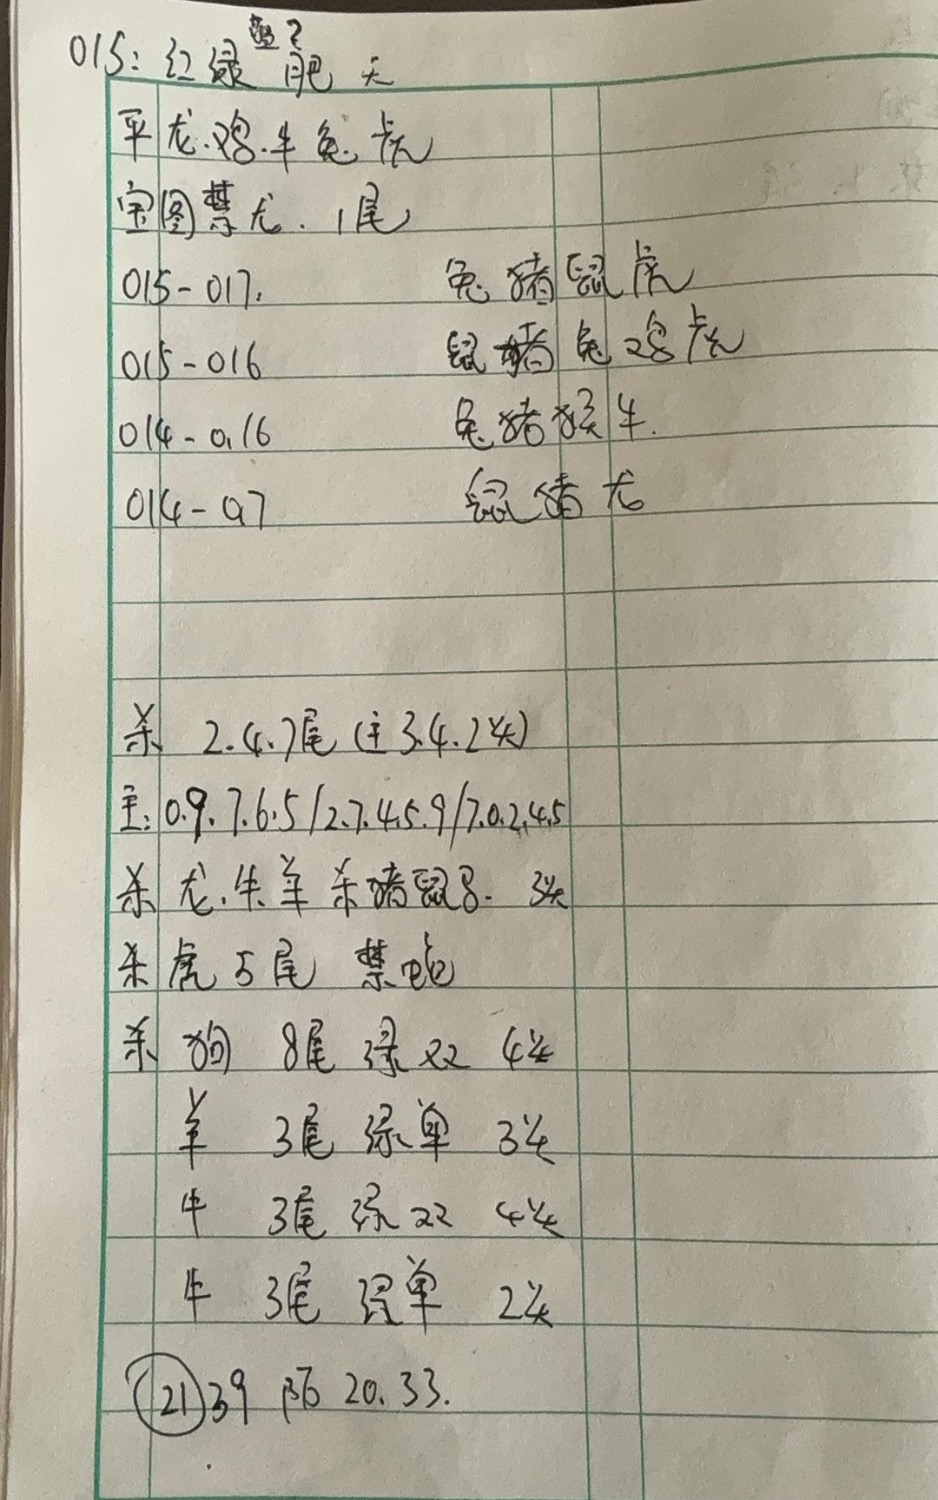 015: 红绿 肥 天
平龙.鸡.牛兔.虎
宝图禁龙.1尾
015-017. 兔猪鼠虎
015-016 鼠猪兔鸡虎
014-0.16 兔猪猴牛.
014-017 鼠猪龙
杀 2.4.7尾(主3.4.2头)
主:0.9.7.6.5/2.7.4.5.9/7.0.2.4.5
杀 龙.牛羊杀猪鼠8. 3头
杀虎5尾 禁蛇
杀 狗 8尾 绿双 4头
羊 3尾 绿单 3头
牛 3尾 绿双 4头
牛 3尾 绿单 2头
21 39 陌 20.33.